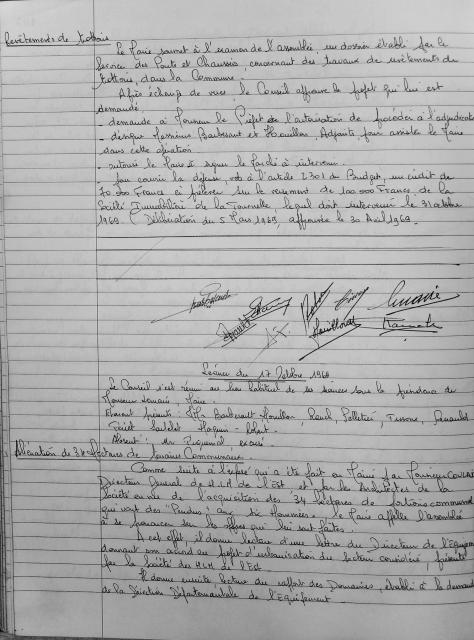 Revêtements de trottoirs
Le Maire soumet à l'examen de l'assemblée, un dossier établi par le
Service des Ponts et Chaussées, concernant des travaux de revêtements de
trottoirs, dans la Commune.
Après échange de vues le Conseil approuve le projet qui lui est
demandé
- demande à Monsieur le Préfet l'autorisation de procéder à l'adjudication
- désigne Messieurs et Houillon, Adjoints pour assister le Maire
dans cette opération.
- autorise le Maire à signer le Marché à intervenir.
- pour couvrir la dépense, vote à l'article 2301 du Budget, un crédit de
70 000 Francs à prélever sur le versement de 100 000 Francs de la
Société Immobilière de la Tournelle, lequel doit intervenir le 31 octobre
1969. (Délibération du 5 Mars 1969, approuvée le 30 Avril 1969.
Séance du 17 Octobre 1969
Le Conseil s'est réuni au lieu habituel de ses séances sous la présidence de
Monsieur, Maire.
Étaient présents : Houillon, Pelletier,
Absent : Mr excusé.
Aliénation de 34 hectares de terrains Communaux
Comme suite à l'exposé qui a été fait en Mairie par Monsieur
Directeur Général de HLM de l'Est et par les Architectes de la
Société en vue de l'acquisition des 34 hectares de portions communales
qui vont des "" aux "", le Maire appelle l'assemblée
à se prononcer sur les offres qui lui sont faites.
A cet effet, il donne lecture d'une lettre du Directeur de l'Equipement
donnant son accord au projet d'urbanisation du secteur considéré, présenté
par la Société des HLM de l'Est
Il donne ensuite lecture du rapport des Domaines, établi à la demande
de la Direction Départementale de l'Equipement.